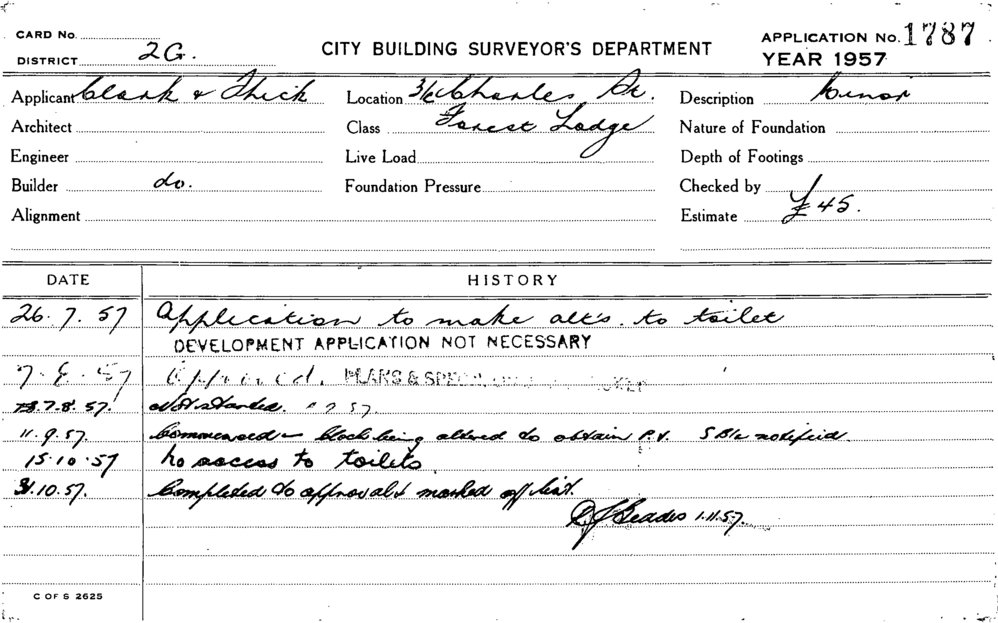 CARD No.
DISTRICT 2G.
CITY BUILDING SURVEYOR'S DEPARTMENT
APPLICATION No. 1787
YEAR 1957
Applicant Clark & Thick Location Charles St. Description Minor
Architect Class Forest Lodge Nature of Foundation
Engineer Live Load Depth of Footings
Builder do. Foundation Pressure Checked by
Alignment Estimate £45.
DATE HISTORY
26.7.57 Application to make alt's. to toilet
DEVELOPMENT APPLICATION NOT NECESSARY
7.8.57 Approved. PLANS &
7.8.57. Not started.
11.9.57. Commenced - block being altered to obtain P.V. notified.
15.10.57 No access to toilets
31.10.57. Completed to approval & marked off list.
1.11.57.
C OF S 2625